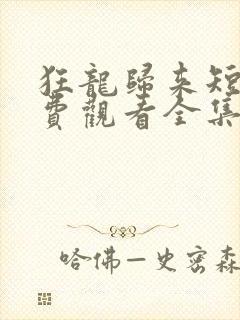 狂龍歸來短
費觀看全集
哈佛—史密森